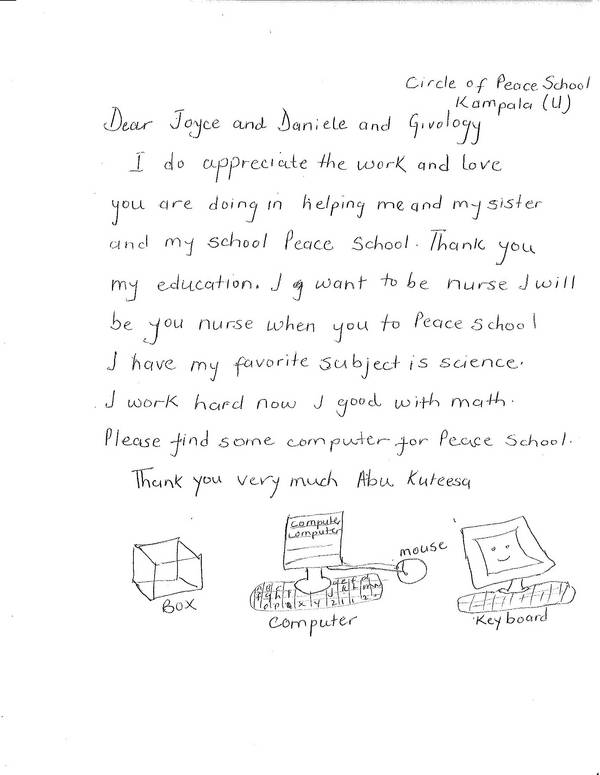 Circle of Peace School
Kampala (U)
Dear Joyce and Daniele and Givology
I do appreciate the work and love
you are doing in helping me and my sister
and my school Peace School. Thank you
my education. I want to be nurse I will
be you nurse when you to Peace school
I have my favorite subject is science.
I work hard now I good with math.
Please find some computer for Peace School.
Thank you very much Abu Kuteesa
compute
computer
mouse
BOX
Computer
Keyboard